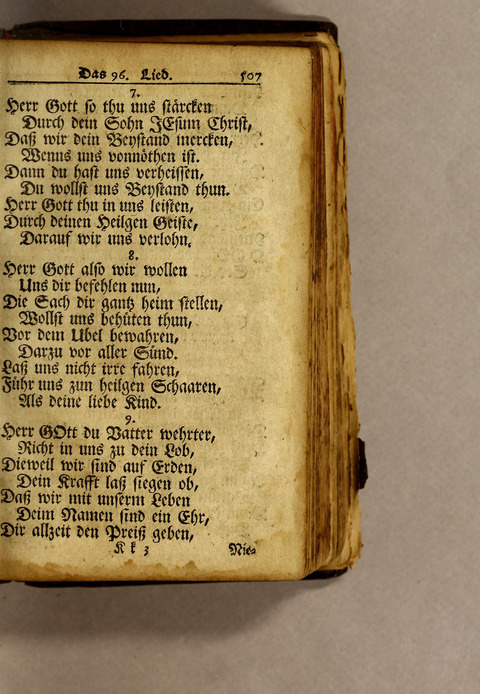 Das 96. Lied. 507
7.
Herr Gott so thu uns stärcken
Durch dein Sohn JEsum Christ,
Daß wir dein Beystand mercken,
Wenns uns vonnöthen ist.
Dann du hast uns verheissen,
Du wollst uns Beystand thun.
Herr Gott thu in uns leisten,
Durch deinen Heilgen Geiste,
Darauf wir uns verlohn.
8.
Herr Gott also wir wollen
Uns dir befehlen nun,
Die Sach dir gantz heim stellen,
Wollst uns behüten thun,
Vor dem Ubel bewahren,
Darzu vor aller Sünd.
Laß uns nicht irre fahren,
Führ uns zun heilgen Schaaren,
Als deine liebe Kind.
9.
Herr GOtt du Vatter wehrter,
Richt in uns zu dein Lob,
Dieweil wir sind auf Erden,
Dein Krafft laß siegen ob,
Daß wir mit unserm Leben
Deim Namen sind ein Ehr,
Dir allzeit den Preiß geben,
K k 3 Nie-